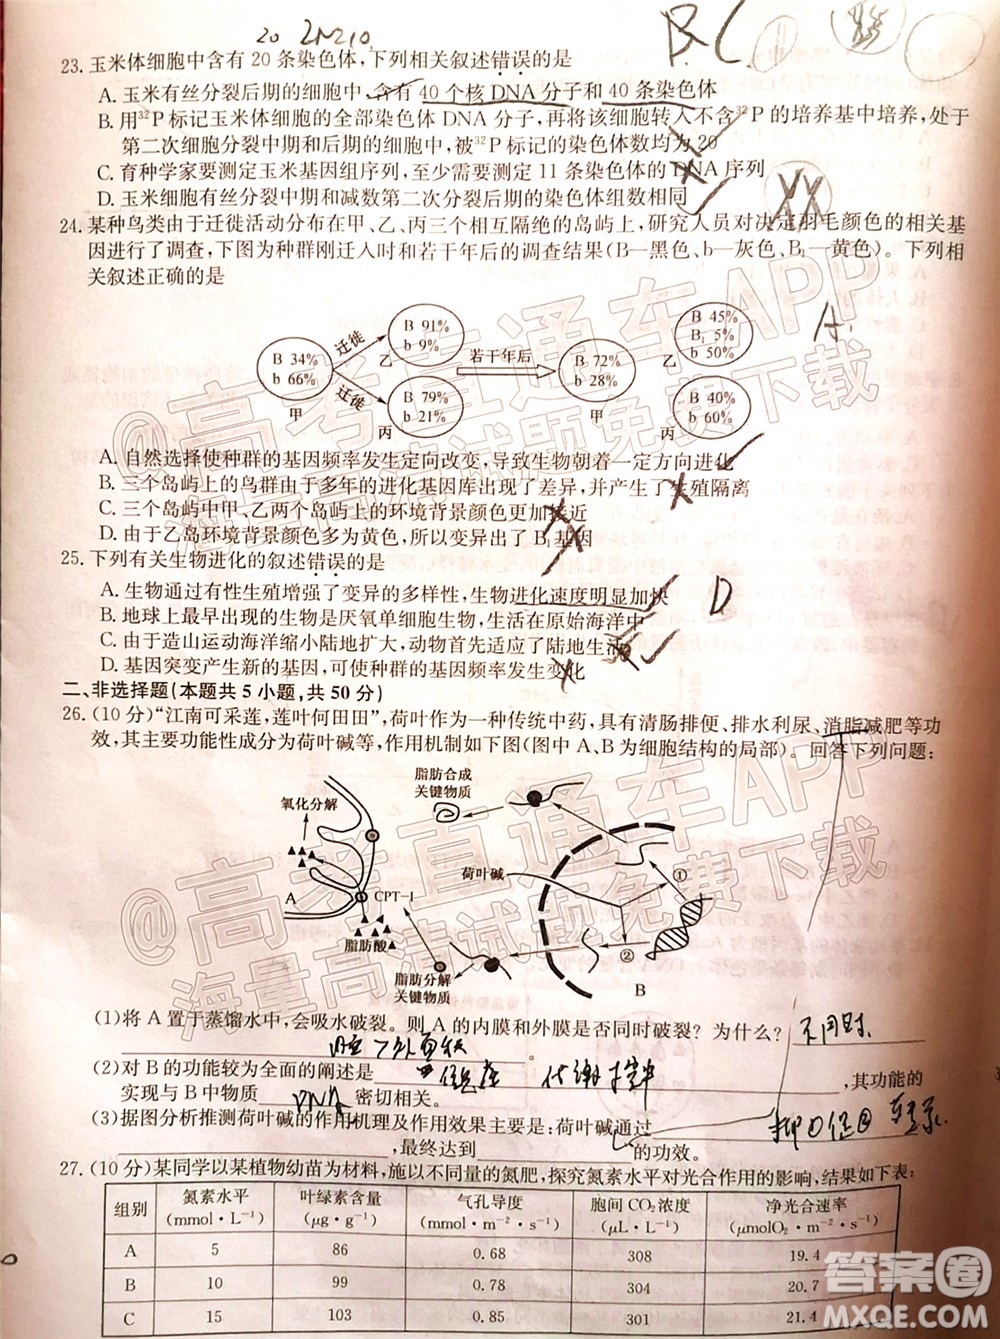 20 2N=10
B.C
23. 玉米体细胞中含有 20 条染色体,下列相关叙述错误的是
A. 玉米有丝分裂后期的细胞中,含有 40 个核 DNA 分子和 40 条染色体
B. 用³²P 标记玉米体细胞的全部染色体 DNA 分子,再将该细胞转入不含³²P 的培养基中培养,处于
第二次细胞分裂中期和后期的细胞中,被³²P 标记的染色体数均为 20
C. 育种学家要测定玉米基因组序列,至少需要测定 11 条染色体的 DNA 序列
D. 玉米细胞有丝分裂中期和减数第二次分裂后期的染色体组数相同
24. 某种鸟类由于迁徙活动分布在甲、乙、丙三个相互隔绝的岛屿上,研究人员对决定羽毛颜色的相关基
因进行了调查,下图为种群刚迁入时和若干年后的调查结果(B—黑色、b—灰色、B₁—黄色)。下列相
关叙述正确的是
A.
B 34%
b 66%
甲
迁徙
迁徙
B 91%
b 9%
乙
B 79%
b 21%
丙
若干年后
B 72%
b 28%
甲
B 45%
B₁ 5%
b 50%
乙
B 40%
b 60%
丙
A. 自然选择使种群的基因频率发生定向改变,导致生物朝着一定方向进化
B. 三个岛屿上的鸟群由于多年的进化基因库出现了差异,并产生了生殖隔离
C. 三个岛屿中甲、乙两个岛屿上的环境背景颜色更加接近
D. 由于乙岛环境背景颜色多为黄色,所以变异出了 B₁ 基因
25. 下列有关生物进化的叙述错误的是
A. 生物通过有性生殖增强了变异的多样性,生物进化速度明显加快
D
B. 地球上最早出现的生物是厌氧单细胞生物,生活在原始海洋中
C. 由于造山运动海洋缩小陆地扩大,动物首先适应了陆地生活
D. 基因突变产生新的基因,可使种群的基因频率发生变化
二、非选择题(本题共 5 小题,共 50 分)
26. (10 分)“江南可采莲,莲叶何田田”,荷叶作为一种传统中药,具有清肠排便、排水利尿、消脂减肥等功
效,其主要功能性成分为荷叶碱等,作用机制如下图(图中 A、B 为细胞结构的局部)。回答下列问题:
脂肪合成
关键物质
氧化分解
A
CPT-1
脂肪酸
荷叶碱
①
②
脂肪分解
关键物质
B
(1)将 A 置于蒸馏水中,会吸水破裂。则 A 的内膜和外膜是否同时破裂?为什么?
不同时
内膜>外面积 。
(2)对 B 的功能较为全面的阐述是 ,其功能的
代谢 控制中
实现与 B 中物质 DNA 密切相关。
(3)据图分析推测荷叶碱的作用机理及作用效果主要是:荷叶碱通过
抑①促② 转录
,最终达到 的功效。
27. (10 分)某同学以某植物幼苗为材料,施以不同量的氮肥,探究氮素水平对光合作用的影响,结果如下表:
组别 氮素水平 (mmol·L⁻¹) 叶绿素含量 (μg·g⁻¹) 气孔导度 (mmol·m⁻²·s⁻¹) 胞间 CO₂ 浓度 (μL·L⁻¹) 净光合速率 (μmolO₂·m⁻²·s⁻¹)
A 5 86 0.68 308 19.4
B 10 99 0.78 304 20.7
C 15 103 0.85 301 21.4
@高考直通车APP
海量高清试题免费下载
@高考直通车APP
海量高清试题免费下载
答案圈
MXQE.COM